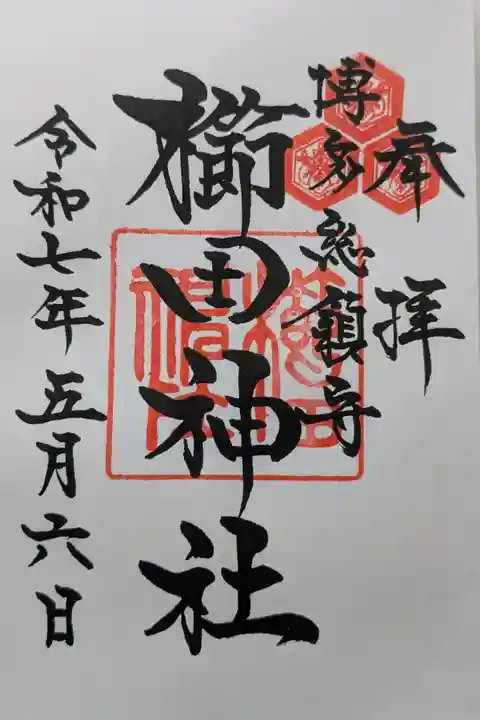 奉拝
博多総鎮守
櫛田神社
令和七年五月六日